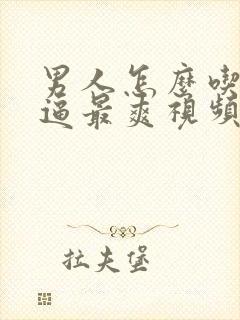 男人怎麼喫
逼最爽視頻
拉夫堡